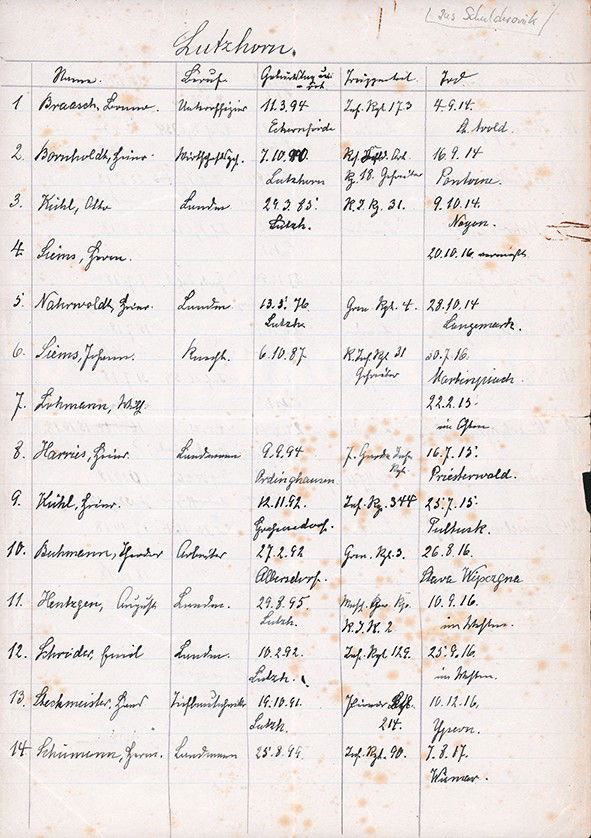 (aus Schulchronik)
Lutzhorn.
Name. Beruf. Geburtstag und -ort Truppenteil. Tod
1 Braasch, Unteroffizier 11.3.94 Inf. Rgt. 173 4.9.14.
Eckernförde
2. Bornholdt, Hinr. 7.10.90. 16.9.14
Lutzhorn Rg. 18. Schreiber
3. Kühl, Otto Landm 29.3.85. R.I.Rg. 31. 9.10.14.
Lutzh. Noyon.
4. Siems, Herm. 20.10.16 vermißt
5. Nahrwoldt, Hinr. Landm 13.5.76 Gren. Rgt. 4. 28.10.14
Lutzh. Langemark.
6. Siems, Johann. Knecht. 6.10.87. R. Inf. Rgt 31 30.7.16.
Martinpuich.
7. Lohmann, Wilh. 22.2.15.
im Osten
8. Harries, Hinr. Landmann 9.9.94 7. Garde Inf. 16.7.15.
Ardinghausen Rgt. Priesterwald.
9. Kühl, Hinr. 12.11.92. Inf. Rg. 344 25.7.15.
Pultusk.
10. Buhmann, Theodor Arbeiter 27.2.92 Gren. Rg. 3. 26.8.16.
Albersdorf. Stava Wipczyna
11. Hentzgen, August Landm. 29.8.95. 10.9.16.
Lutzh. R.I.R. 2 im Westen.
12. Schröder, Emil Landm. 10.2.92. Inf. Rgt 129. 25.9.16.
Lutzh. im Westen.
13. Steckmeister, Hans Tiefbautechniker 19.10.91. Pionier 10.12.16.
Lutzh. 214. Ypern.
14. Schümann, Herm. Landmann 25.8.99. Inf. Rgt. 90. 7.8.17.
Wismar.